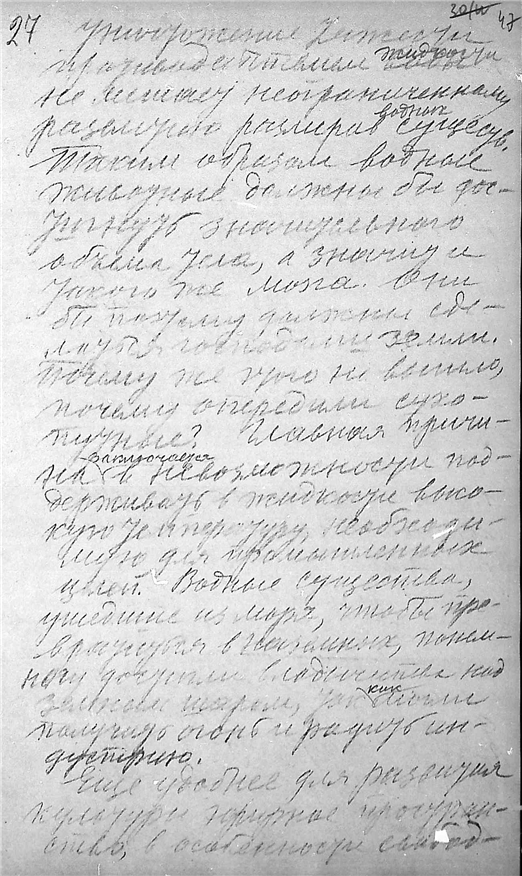 27 47
уничтожение тяжести
противодействием жидкости
не мешает неограниченному
развитию размеров водных существ.
Таким образом водные
животные должны бы дос-
тигнуть значительного
объема тела, а значит и
такого же мозга. Они
бы потому должны сде-
латься господами земли.
Почему же этого не вышло,
почему опередили сухо-
путные? Главная причи-
на заключается в невозможности под-
держивать в жидкости высо-
кую температуру, необходи-
мую для промышленных
целей. Водные существа,
ушедшие из моря, чтобы пре-
вратиться в наземных, понем-
ногу достигли владычества над
земным шаром, так как могли
получать огонь и развить ин-
дустрию.
Еще удобнее для развития
культуры эфирное простран-
ство, в особенности свобод-